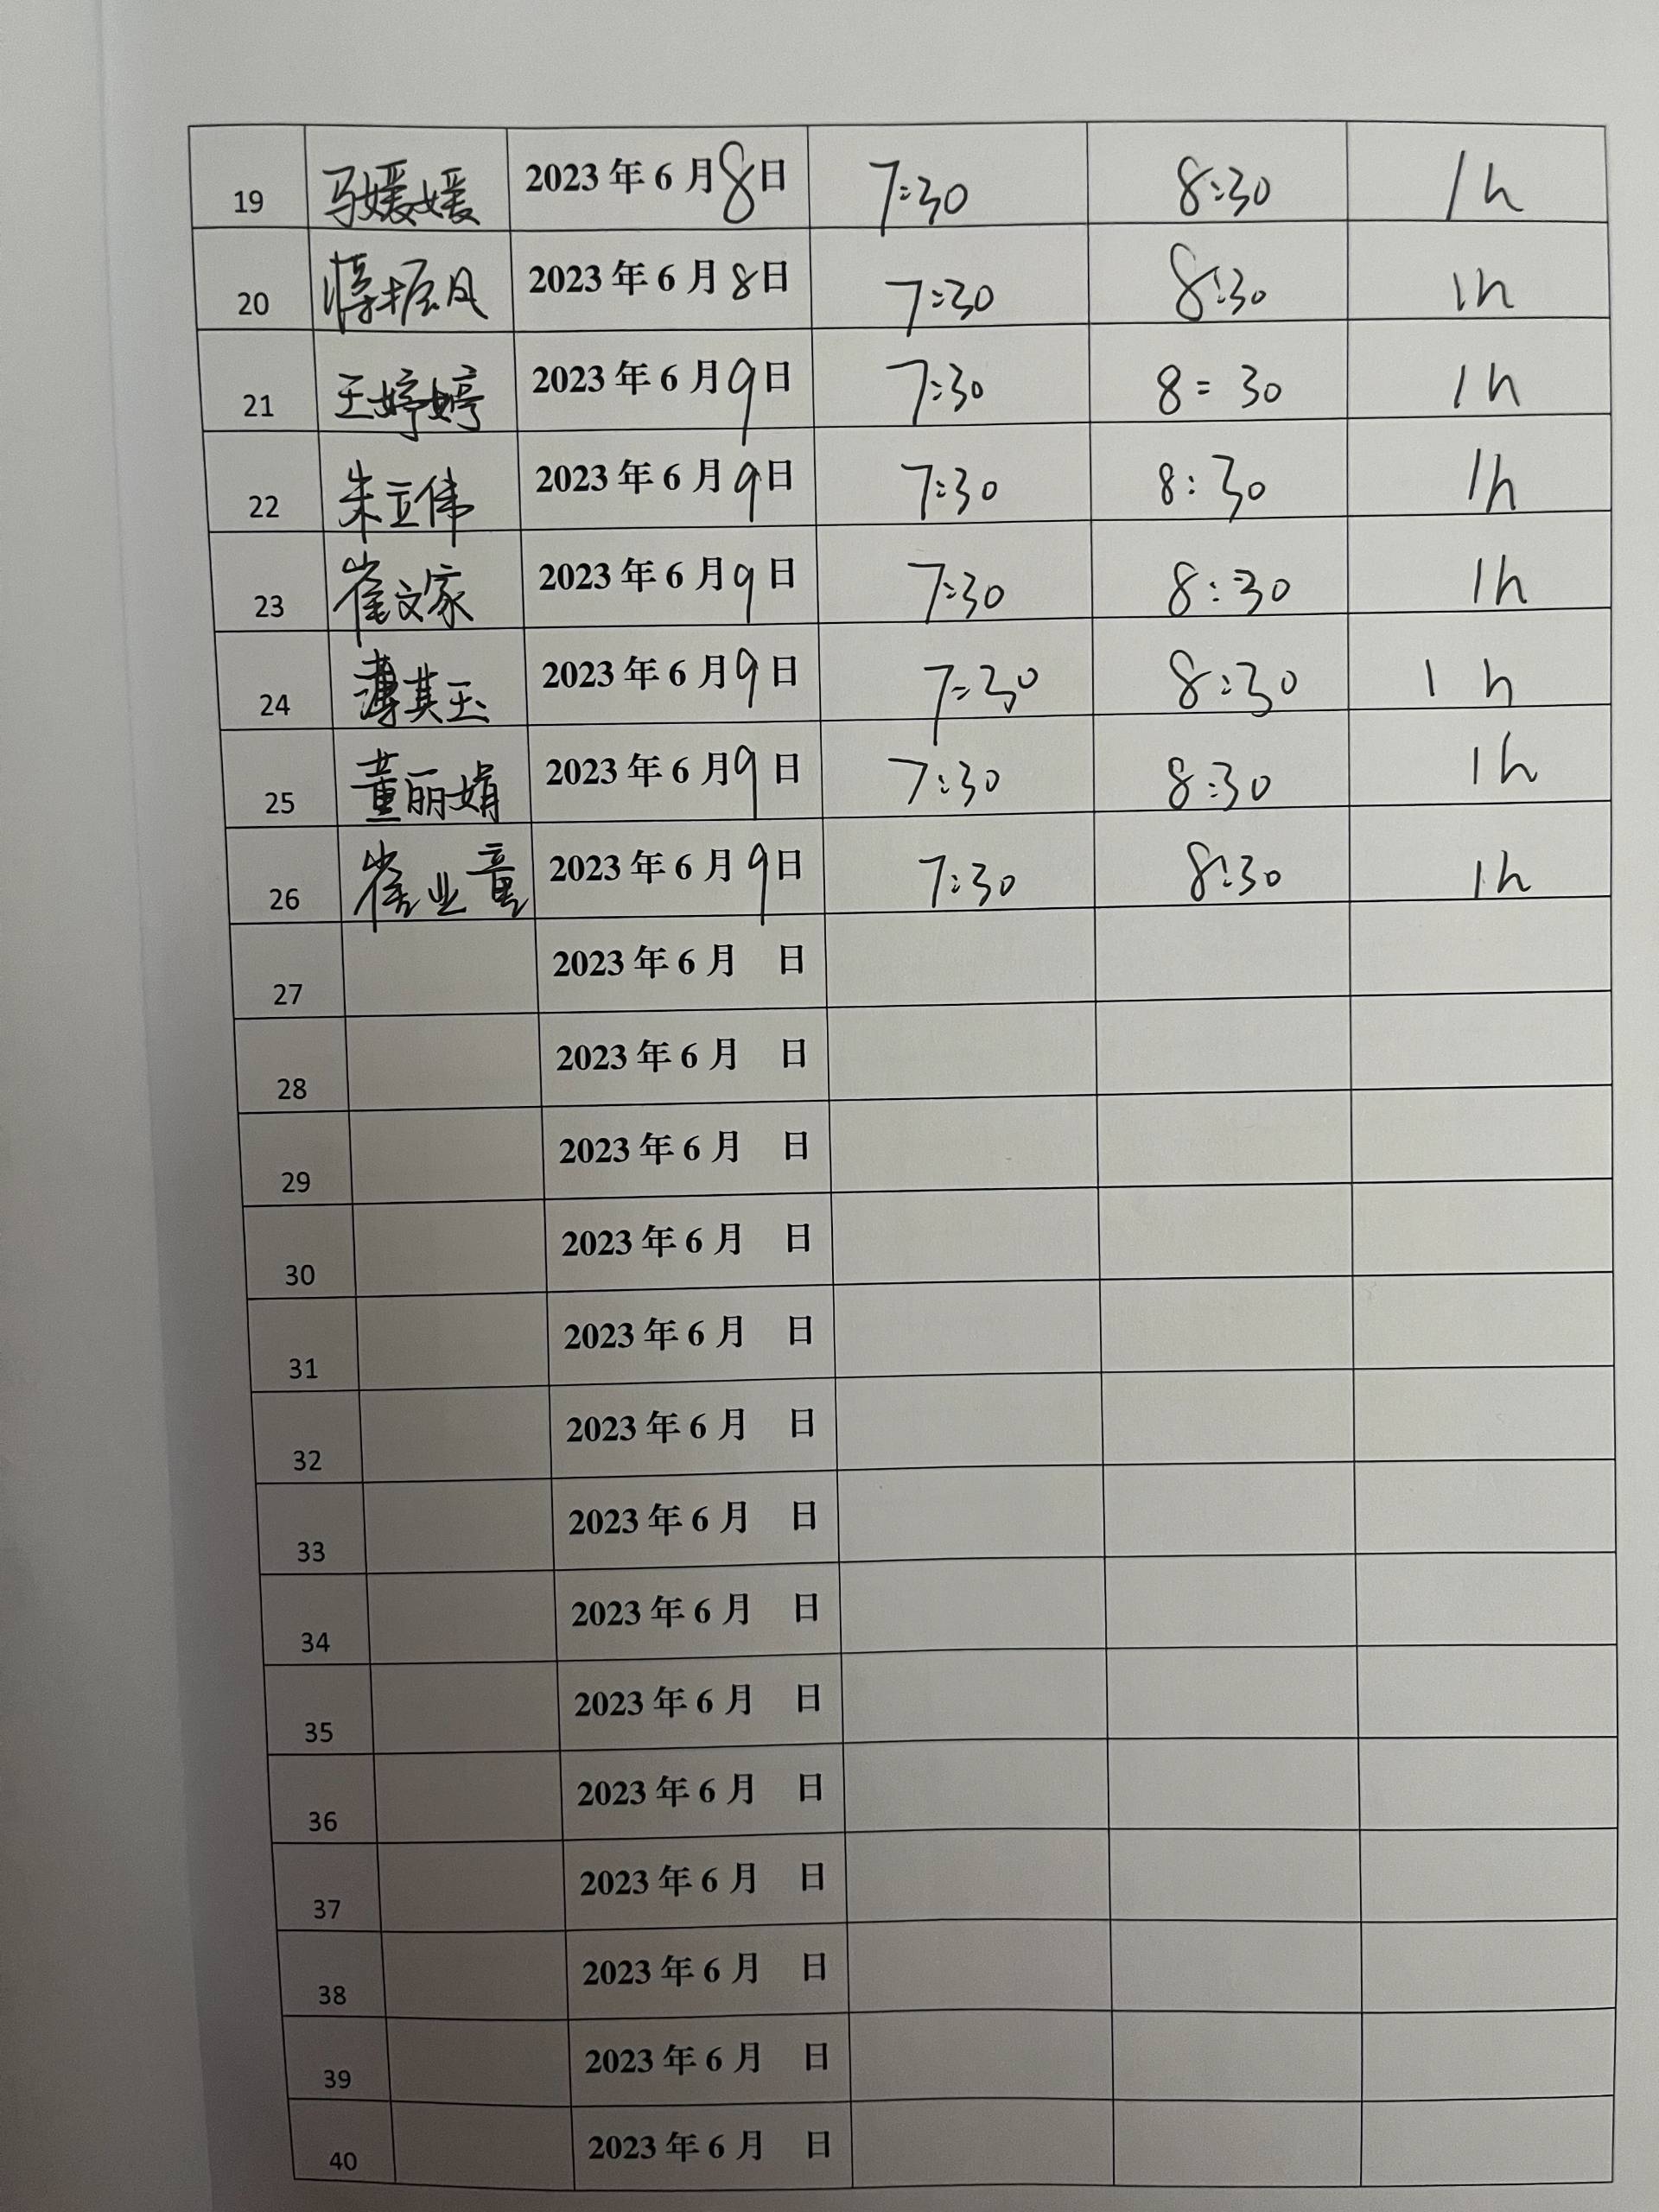 19 马媛媛 2023年6月8日 7:30 8:30 1h
20 振凤 2023年6月8日 7:30 8:30 1h
21 王婷婷 2023年6月9日 7:30 8:30 1h
22 朱立伟 2023年6月9日 7:30 8:30 1h
23 崔文家 2023年6月9日 7:30 8:30 1h
24 薄其玉 2023年6月9日 7:30 8:30 1h
25 董丽娟 2023年6月9日 7:30 8:30 1h
26 崔业 2023年6月9日 7:30 8:30 1h
27 2023年6月 日
28 2023年6月 日
29 2023年6月 日
30 2023年6月 日
31 2023年6月 日
32 2023年6月 日
33 2023年6月 日
34 2023年6月 日
35 2023年6月 日
36 2023年6月 日
37 2023年6月 日
38 2023年6月 日
39 2023年6月 日
40 2023年6月 日